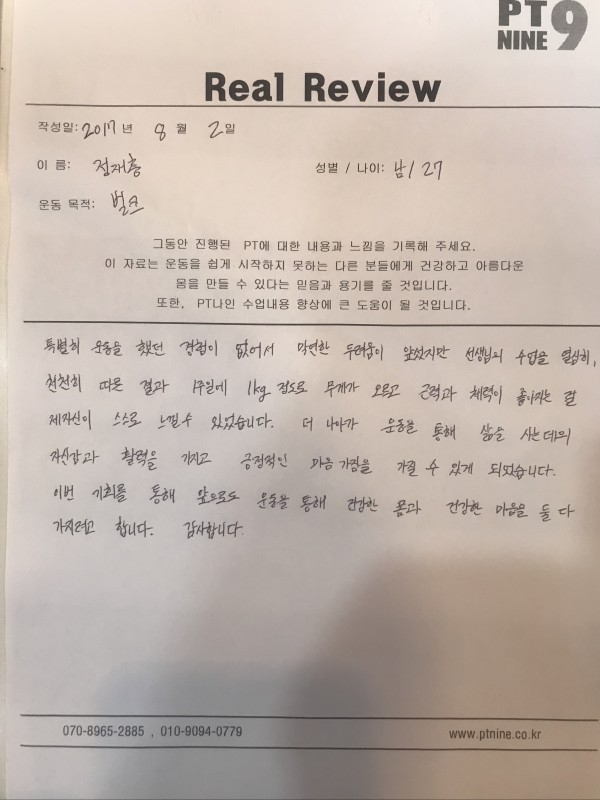 PT
NINE 9
Real Review
작성일: 2017년 8월 2일
이 름: 정재홍
성별 / 나이: 남 / 27
운동 목적: 벌크
그동안 진행된 PT에 대한 내용과 느낌을 기록해 주세요.
이 자료는 운동을 쉽게 시작하지 못하는 다른 분들에게 건강하고 아름다운
몸을 만들 수 있다는 믿음과 용기를 줄 것입니다.
또한, PT나인 수업내용 향상에 큰 도움이 될 것입니다.
특별히 운동을 했던 경험이 없어서 막연한 두려움이 앞섰지만 선생님의 수업을 열심히,
천천히 따른 결과 1주일에 1kg 정도로 무게가 오르고 근력과 체력이 좋아지는 걸
제자신이 스스로 느낄 수 있었습니다. 더 나아가 운동을 통해 삶을 사는데의
자신감과 활력을 가지고 긍정적인 마음가짐을 가질 수 있게 되었습니다.
이번 기회를 통해 앞으로도 운동을 통해 건강한 몸과 건강한 마음을 둘 다
가지려고 합니다. 감사합니다.
070-8965-2885 , 010-9094-0779
www.ptnine.co.kr